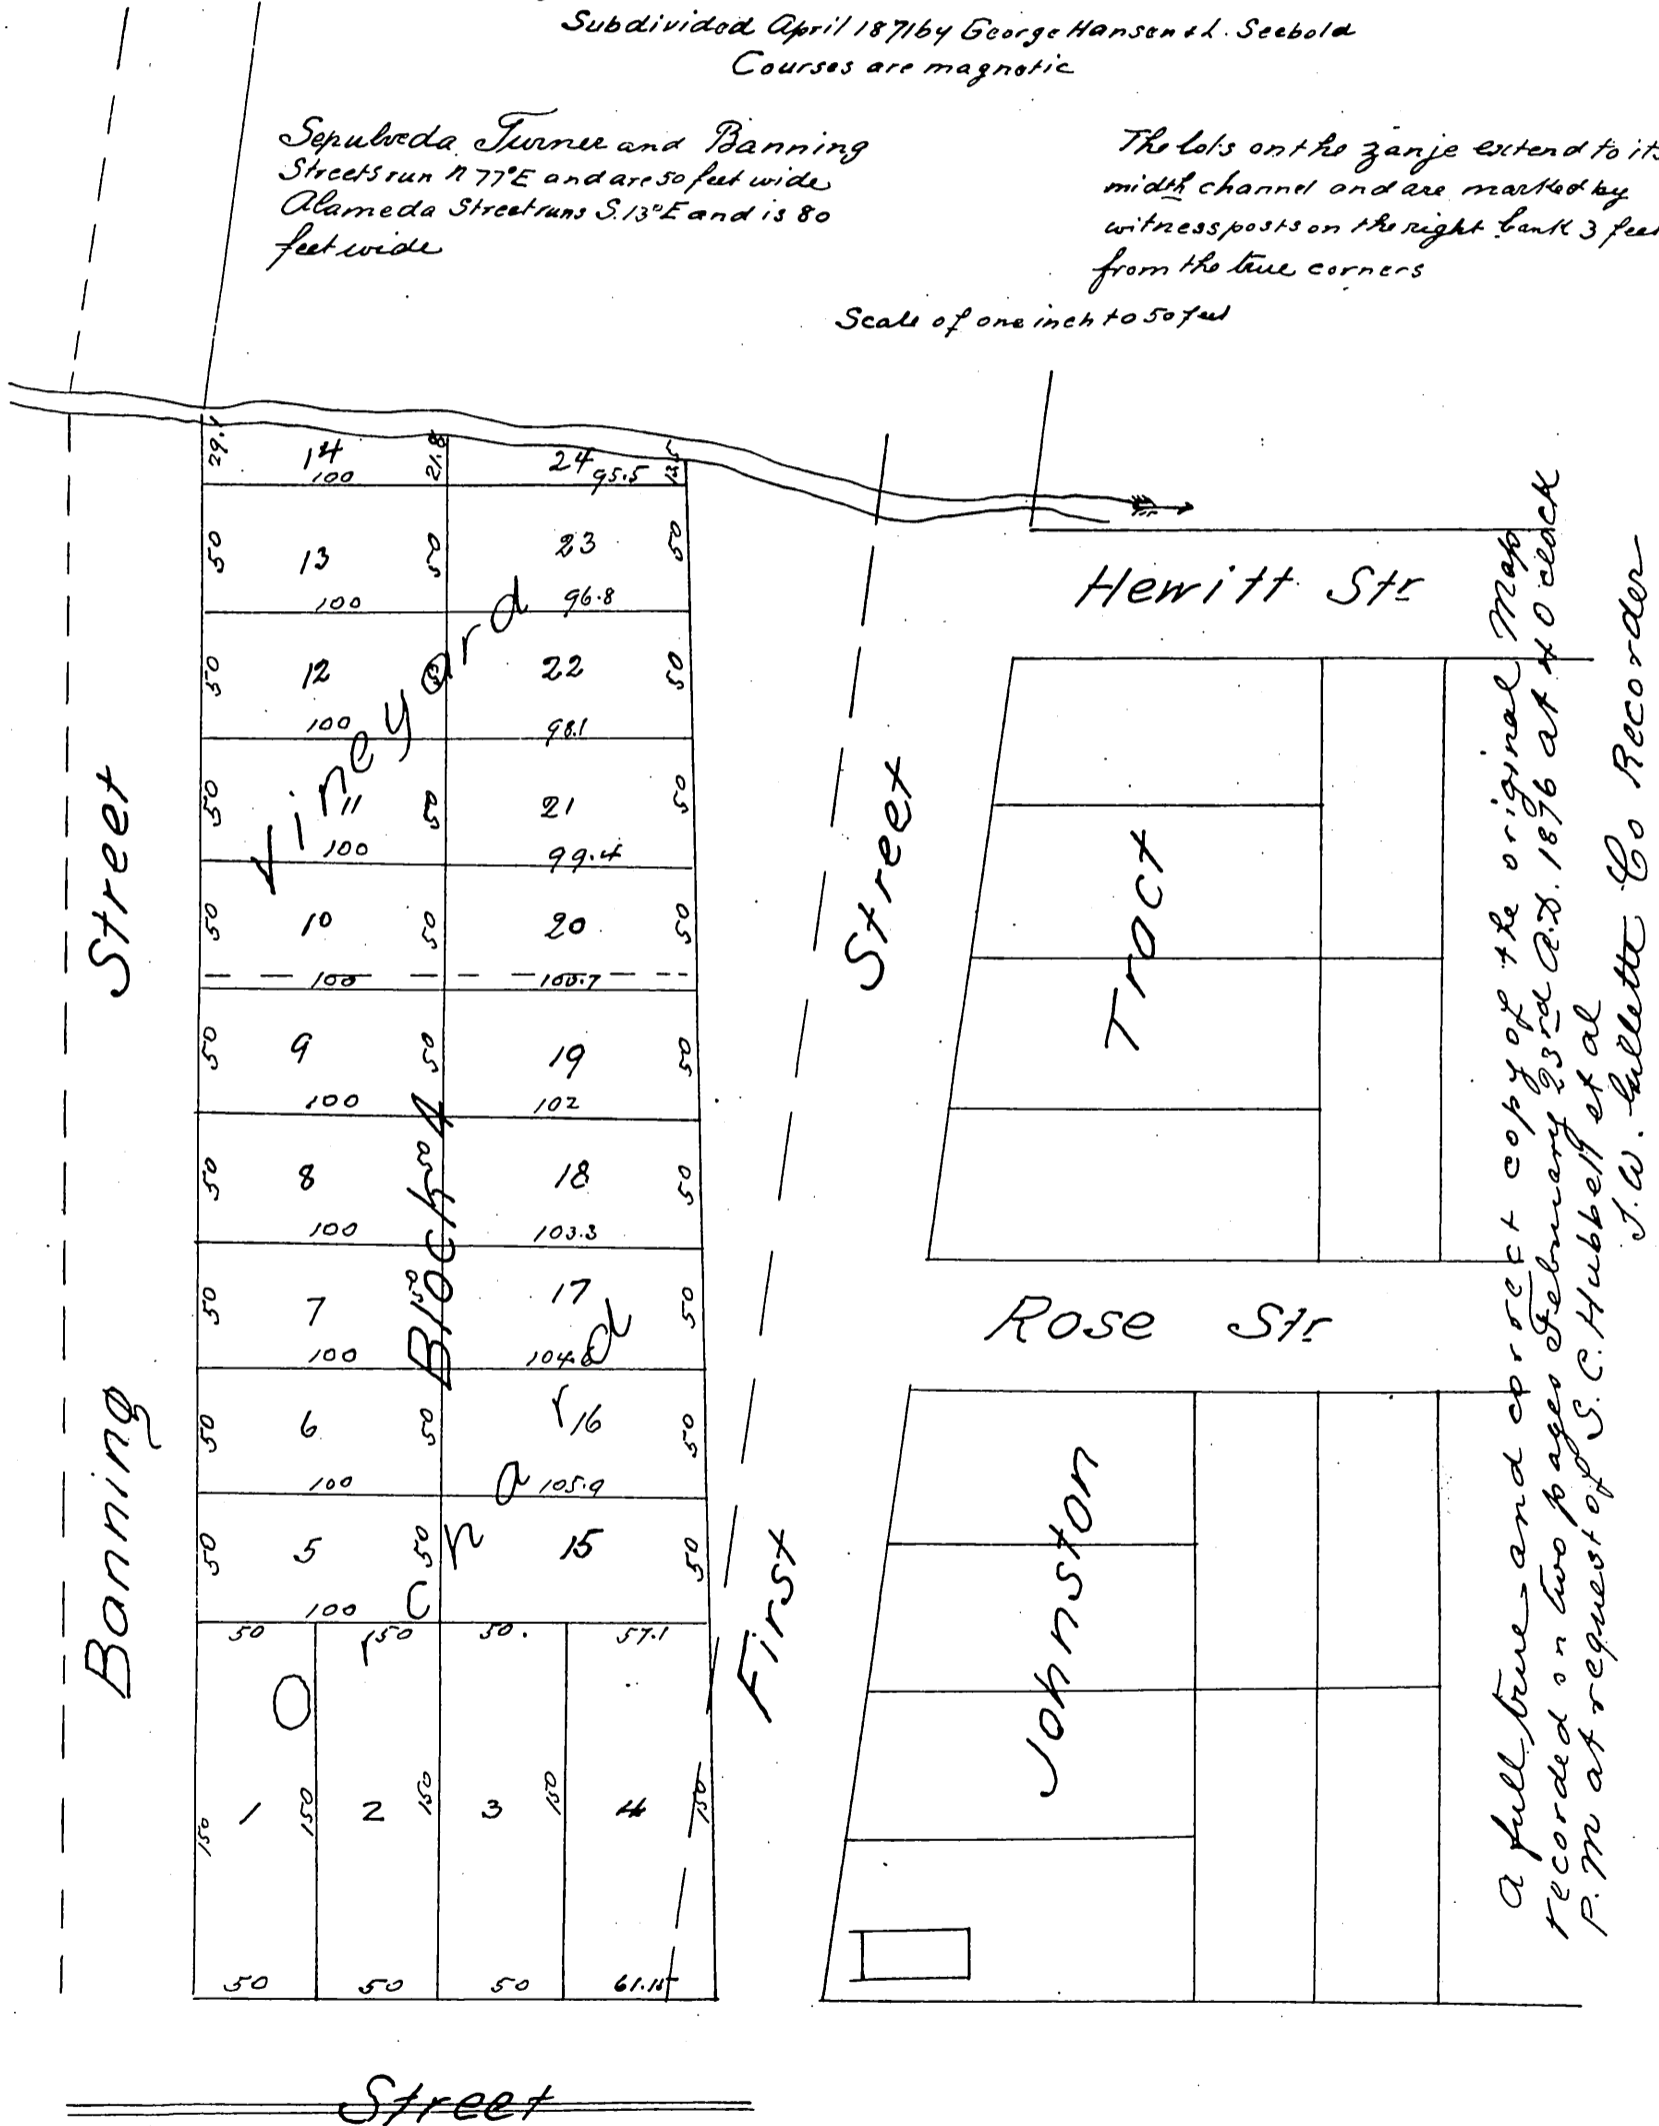 Subdivided April 1871 by George Hansen & L. Seebold
Courses are magnetic
Sepulveda Turner and Banning
Streets run N 77°E and are 50 feet wide
Alameda Street runs S. 13°E and is 80
feet wide
The lots on the zanje extend to its
midth channel and are marked by
witness posts on the right bank 3 feet
from the true corners
Scale of one inch to 50 feet
29.1
14
100
21.8
24
95.5
50
13
100
50
23
96.8
50
50
12
100
50
22
98.1
50
50
11
100
50
21
99.4
50
50
10
100
50
20
100.7
50
50
9
100
50
19
102
50
50
8
100
50
18
103.3
50
50
7
100
50
17
104.6
50
50
6
100
50
16
105.9
50
50
5
100
50
15
50
50
50
50.
57.1
150
1
150
2
150
3
150
4
150
50
50
50
61.15
Vineyard
Block 4
Orchard
Banning Street
First Street
Hewitt Str
Rose Str
Johnston Tract
Street
a full true and correct copy of the original Map
recorded on two pages February 23rd A.D. 1876 at 4 O clock
P.M at request of S. C. Hubbell et al
J. W. Gillette Co Recorder